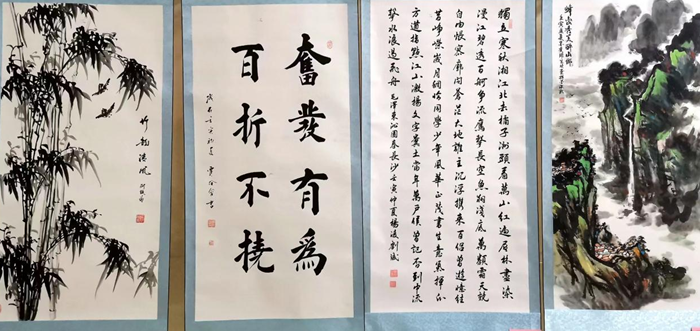 竹韵清风
奮發有為
百折不撓
獨立寒秋湘江北去橘子洲頭看萬山紅遍層林盡染
漫江碧透百舸争流鷹擊長空魚翔淺底萬類霜天競
自由悵寥廓問蒼茫大地誰主沉浮攜來百侣曾遊憶往
昔崢嶸歲月稠恰同學少年風華正茂書生意氣揮斥
方遒指點江山激揚文字糞土當年萬户侯曾記否到中流
擊水浪遏飛舟 毛澤東沁園春長沙壬寅仲夏楊凌劉斌